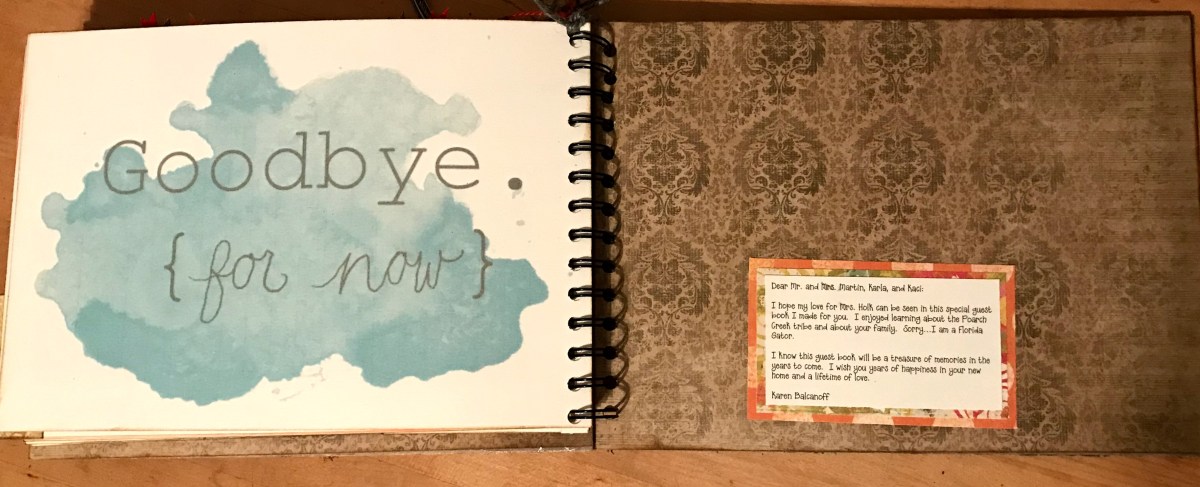 Goodbye.
{for now}
Dear Mr. and Mrs. Martin, Karla, and Kaci:
I hope my love for Mrs. Holk can be seen in this special guest
book I made for you. I enjoyed learning about the Poarch
Creek tribe and about your family. Sorry...I am a Florida
Gator.
I know this guest book will be a treasure of memories in the
years to come. I wish you years of happiness in your new
home and a lifetime of love.
Karen Balcanoff